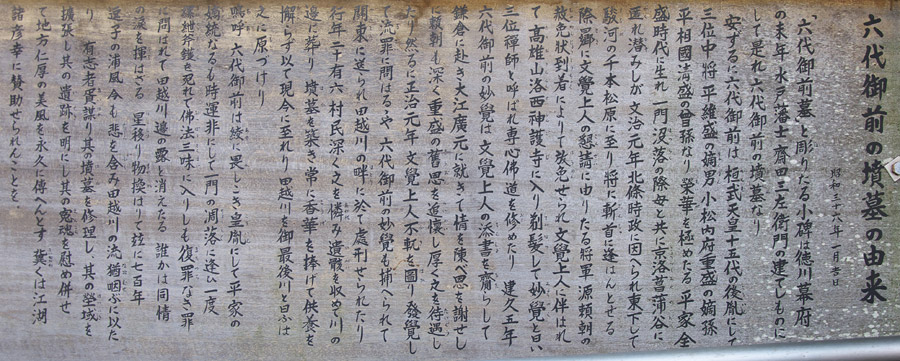 六代御前の墳墓の由来
昭和三十六年一月吉日
「六代御前墓」と彫りたる小碑は徳川幕府
の末年水戸藩士斎四三左衛門の建てしものに
して是れ六代御前の墳墓なり
安ずるに六代御前は桓武天皇十五代の後胤にして
三位中将平維盛の嫡男小松内府重盛の嫡孫
平相國清盛の曽孫なり栄華を極めたる平家全
盛時代に生れ一門没落の際母と共に京落菖蒲谷に
匿れ潜みしが文治元年北條時政に囚へられ東下して
駿河の千本松原に至り将に斬首に逢はんとせる
際に文覺上人の懇請に由りたる将軍源頼朝の
赦免状到着によりて宥免せられ文覺上人に伴はれ
て高雄山洛西神護寺に入り剃髪して妙覺と曰い
三位禅師と呼ばれ専心佛道を修めたり 建久五年
六代御前の妙覺は文覺上人の添書を齎らして
鎌倉に赴き大江廣元に就きて情を陳べ恩を謝せし
に頼朝も深く重盛の舊恩を追懐し厚く之を待遇し
たり然るに正治元年文覺上人不軌を圖り發覺し
て流罪に問はるや六代御前の妙覺も捕へられて
関東に送られ田越川の畔に於て處刑せられたり
行年二十有六村民深く之を憐み遺骸を収めて川の
邊に葬り 墳墓を築き常に香華を捧げて供養を
懈らず以て現今に至れり田越川を御最後川と曰ふは
之に原づけり
嗚呼六代御前は竣に畏しこき皇胤にして平家の
嫡統なるも時運非にして一門の凋落に逢ひ一度
縲絏斧鉞を免れて佛法三昧に入りしも復罪なき罪
に問はれて田越川邊の露と消えたる 誰かは同情
の涙を揮はざる 星移り物換はりて茲に七百年
逗子の浦風今も悲を含み田越川の流猶咽ぶに以た
り 有志者胥謀り其の墳墓を修理し、其の塋域を
擴張し其の遺跡を明にし其の寃魂を慰め併せ
て地方仁厚の美風を永久に傳へんとす冀くは江湖
諸彦幸に賛助せられんことを、